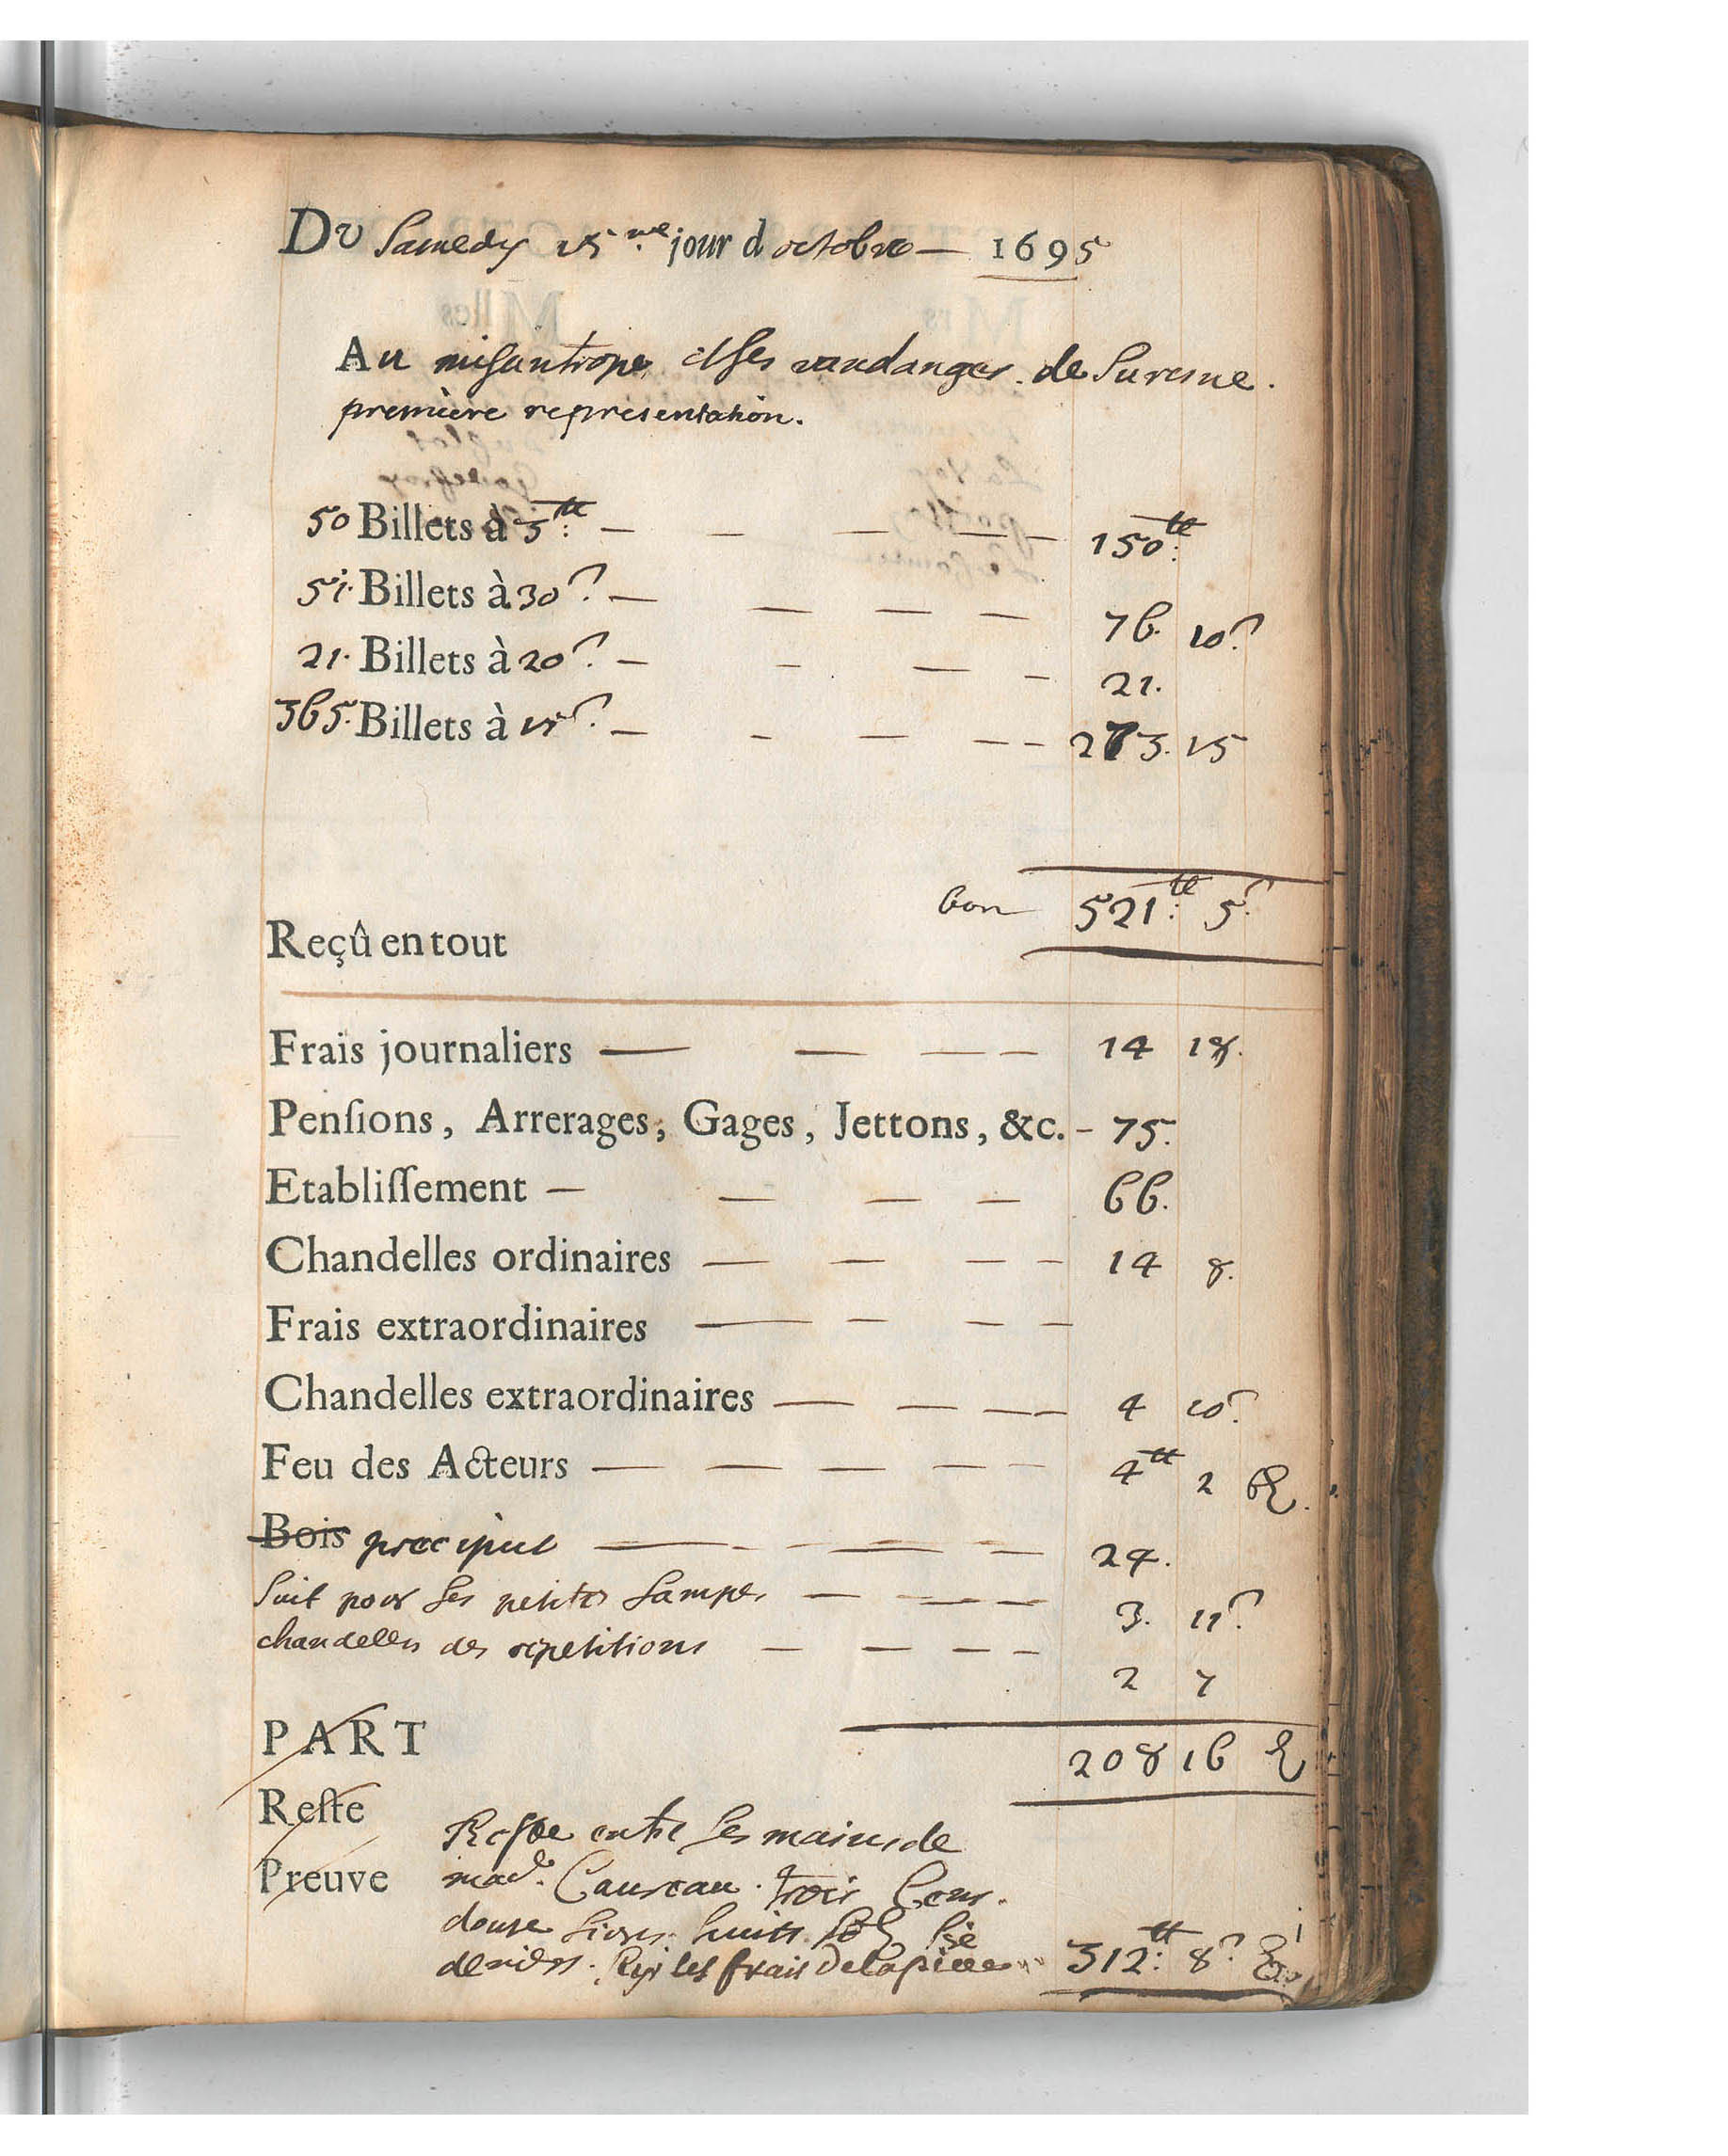 Du Samedy 15.me jour d octobre — 1695
Au misantrope et les vandanges de Suresne.
première representation.
50 Billets à 3tt — 150tt
51. Billets à 30s — 76. 10s
21. Billets à 20s — 21.
365. Billets à 15s — 273. 15
bon 521tt 5s
Reçû en tout
Frais journaliers — 14 18.
Penſions, Arrerages, Gages, Jettons, &c. - 75.
Etabliſſement — 66.
Chandelles ordinaires — 14 8.
Frais extraordinaires —
Chandelles extraordinaires — 4 10s
Feu des Acteurs — 4tt 2 6d.
Bois preciput — 24.
Suif pour les petites lampes — 3. 11s
chandelles des repetitions — 2 7
PART
208 16 6d
Reſte
Reste entre les mains de
Preuve
mad.e Caureau. trois cens.
douze livres huit
deniers. les frais de la piece 312tt 8s